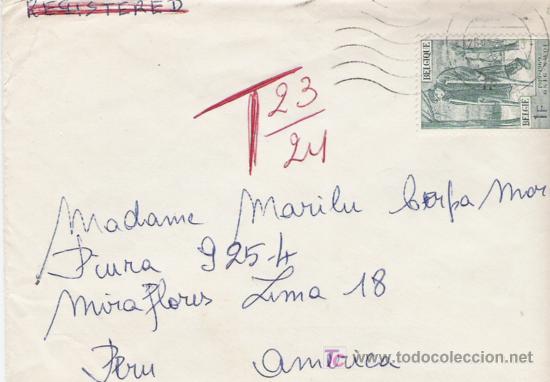 REGISTERED
BELGIQUE
BELGIE
1F
T 23/24
Madame Marilu Cerpa Mor
Piura 925-4
Miraflores Lima 18
Peru America
www.todocoleccion.net